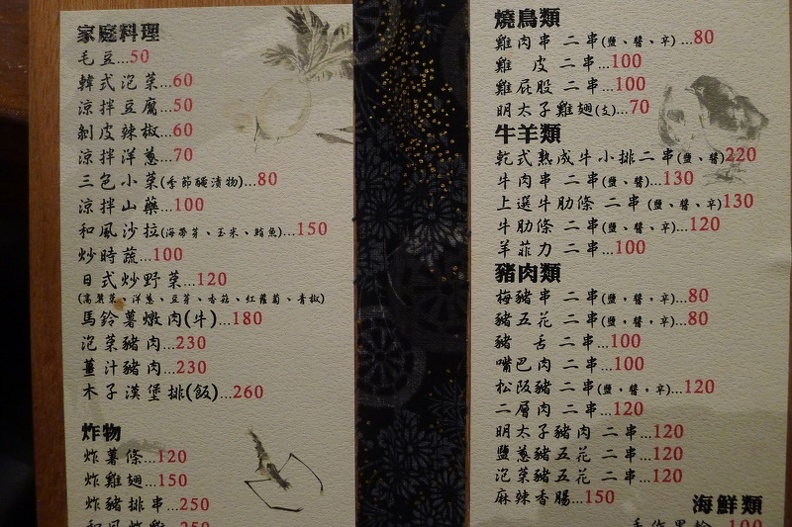 家庭料理
毛豆...50
韓式泡菜...60
涼拌豆腐...50
剝皮辣椒...60
涼拌洋蔥...70
三色小菜(季節醃漬物)...80
涼拌山藥...100
和風沙拉(海帶芽、玉米、鮪魚)...150
炒時蔬...100
日式炒野菜...120
(高麗菜、洋蔥、豆芽、香菇、紅蘿蔔、青椒)
馬鈴薯燉肉(牛)...180
泡菜豬肉...230
薑汁豬肉...230
木子漢堡排(飯)...260
炸物
炸薯條...120
炸雞翅...150
炸豬排串...250
和風炸雞...250
燒鳥類
雞肉串 二串(鹽、醬、辛)...80
雞 皮 二串...100
雞屁股 二串...100
明太子雞翅(支)...70
牛羊類
乾式熟成牛小排二串(鹽、醬)220
牛肉串 二串(鹽、醬)...130
上選牛肋條 二串(鹽、醬、辛)130
牛肋條 二串(鹽、醬、辛)...120
羊菲力 二串...100
豬肉類
梅豬串 二串(鹽・醬・辛)...80
豬五花 二串(鹽・醬・辛)...80
豬 舌 二串...100
嘴巴肉 二串...100
松阪豬 二串(鹽・醬・辛)...120
二層肉 二串...120
明太子豬肉 二串...120
鹽蔥豬五花 二串...120
泡菜豬五花 二串...120
麻辣香腸...150
海鮮類